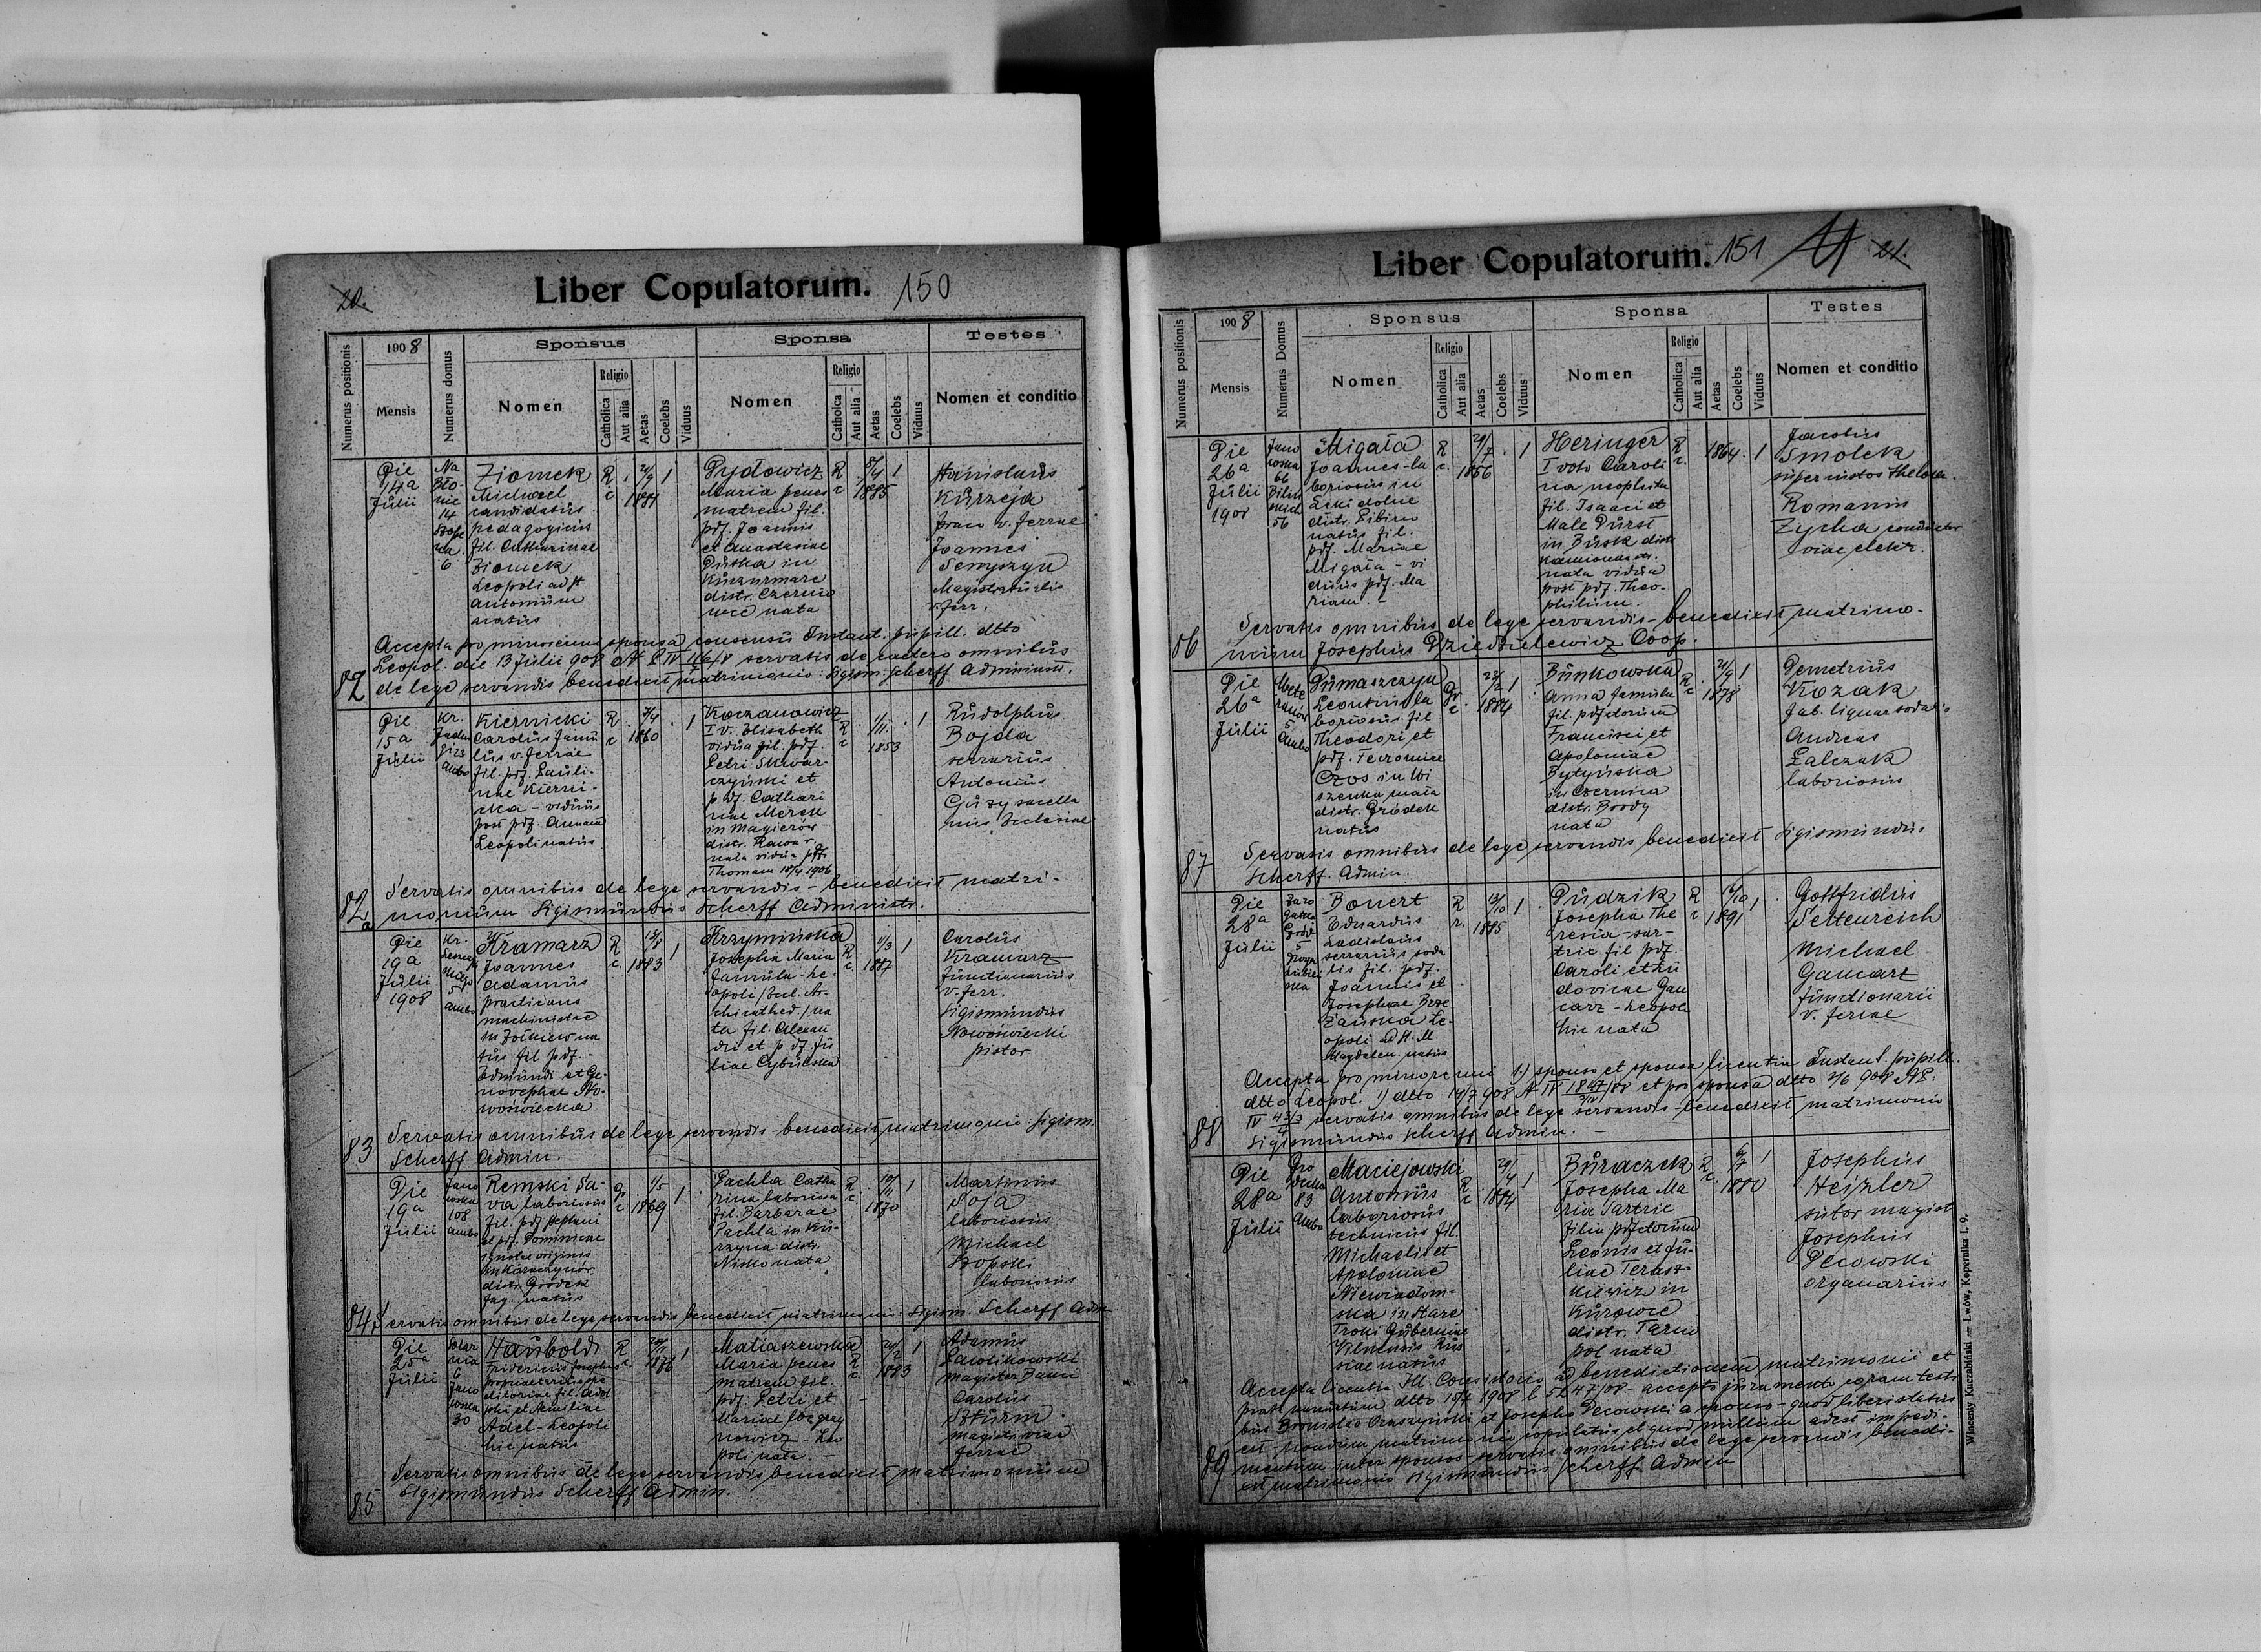 20.
Liber Copulatorum. 150
Numerus positionis
1908
Mensis
Numerus domus
Sponsus
Nomen
Religio
Catholica
Aut alia
Aetas
Coelebs
Viduus
Sponsa
Nomen
Religio
Catholica
Aut alia
Aetas
Coelebs
Viduus
Testes
Nomen et conditio
Die
14a
Julii
Na
Bło-
nie
14
6
Ziomek
Michael
candidatus
pedagogicus
fil. Catharinae
Ziomek
Leopoli ad St
Antonium
natus
R
c
1881
1
Dydowicz
Maria penes
matrem fil.
pdf. Joannis
et Anastasiae
Dutka in
Kuczurmare
distr. Czernio
wce nata
R
c
8/4
1885
1
Stanislaus
Kurzeja
v. ferrae
Joannes
Magistratualis
v. ferr.
Accepta pro minorenni sponsa consensu Instant. pupill. dtto
Leopol. die 13 Julii 908 servatis de caetero omnibus
de lege servandis benedicit matrimonio: Sigism: Scherff Administr.
82
Die
15a
Julii
Kr.
Jadwi
gi 23
ambo
Kiernicki
Carolus famu
lus v. ferrae
fil. pdf. Pauli-
nae Kierni-
cka - viduus
post pdf. Annam
Leopoli natus
R
c
1860
1
Koczanowicz
I v. Elisabeth
vidua fil. pdf.
Petri Skwar-
czyński et
pdf. Cathari
nae Merck
in Magierów
distr. Rawa r.
nata vidua pdf.
Thomam 10/4 1906
R
c
1/11
1853
1
Rudolphus
Bojda
serrarius
Antonius
Guzy sacella
nus Ecclesiae
Servatis omnibus de lege servandis - benedicit matri-
monium Sigismundus Scherff Administr.
82a
Die
19a
Julii
1908
Kr.
ambo
Kramarz
Joannes
Adamus
practicans
machinistae
in Żółkiew na
tus fil pdf. -
Edmundi et Ge-
novephae No-
wowiecka
R
c
1883
1
Krzymińska
Josepha Maria
famula - Le-
opoli / Eccl. Ar-
chicathed. / na
ta fil. Alexan
dri et pdf. Ju
liae Cybulska
R
c
11/3
1887
1
Carolus
Kramarz
functionarius
v. ferr.
Sigismundus
Nowowiecki
pistor
Servatis omnibus de lege servandis - benedicit matrimonio Sigism.
Scherff Admin.
83
Die
19a
Julii
Jano
wska
108
ambo
Remski Sa-
va laboriosus
fil. pdf Stephani
et pdf. Dominicae
ignotae originis
in Karaczynów
distr. Gródek
Jag. natus
Gr
c
1/5
1869
1
Pachla Catha
rina laboriosa
fil. Barbarae
Pachla in Ku-
rzyna distr.
Nisko nata
R
c
10/11
1870
1
Martinus
Soja
laboriosus
Michael
Szopski
laboriosus
84
Servatis omnibus de lege servandis benedicit matrimonio: Sigism. Scherff Adm
Die
25a
Julii
Solar
nia
6
Jano
wska
30
Haubold
Fridericus Josephus
proprietarius
fil. Adol
phi et Aemiliae
Adel - Leopoli
hic natus
R
c
20/11
1876
1
Matiaszewska
Maria penes
matrem fil.
pdf. Petri et
Mariae
nowicz - Leo
poli nata. -
R
c
1883
1
Adamus
Pawlikowski
magister
Carolus
Szturm
magistr viae
ferrae
Servatis omnibus de lege servandis benedicit matrimonium
Sigismundus Scherff Admin.
85
Liber Copulatorum. 151
21.
Numerus positionis
1908
Mensis
Numerus Domus
Sponsus
Nomen
Religio
Catholica
Aut alia
Aetas
Coelebs
Viduus
Sponsa
Nomen
Religio
Catholica
Aut alia
Aetas
Coelebs
Viduus
Testes
Nomen et conditio
Die
26a
Julii
1908
Jano
wska
66
56
Migała
Joannes - la
boriosus in
Łęki dolne
distr. Pilzno
natus fil.
pdf. Mariae
Migała - vi
duus pdf. Ma
riam. -
R
c.
29/7
1856
1
Heringer
I voto Caroli
na neophita
fil. Isaaci et
Male Durst
in Busk distr
Kamionka str.
nata vidua
post pdf. Theo-
philum.
R
c.
1864
1
Jacobus
Smolek
Romanus
Zycha conductor
viae elektr.
Servatis omnibus de lege servandis - benedicit matrimo-
nium Josephus Dziedzielewicz Coop.
86
Die
26a
Julii
5
ambo
Dumaszczyn
Leontius la
boriosus. fil
Theodori et
pdf. Fevroniae
Czos in Wi
szenka mała
distr. Gródek
natus
Gr
c.
23/2
1884
1
Bunkowska
Anna famula
fil. pdfctorum
Francisci et
Apoloniae
Bytyńska
in Czernica
distr. Brody
nata
R
c
1878
1
Demetrius
Kozak
fab. lignar sodalis
Andreas
Palczak
laboriosus
Servatis omnibus de lege servandis benedicit Sigismundus
Scherff. Admin.
87
Die
28a
Julii
5
Bonert
Eduardus
Ladislaus
serrarius soda
lis fil. pdf.
Joannis et
Josephae Brze
zańska Le-
opoli ad St. M.
Magdalen. natus
R
r.
13/10
1885
1
Dudzik
Josepha The
resia - sar-
trix fil pdf.
Caroli et Lu
dovicae Gan
carz - Leopoli
hic nata
R
c
1891
1
Gottfridus
Settenreich
Michael
Gancarz
functionarii
v. ferrae
Accepta pro minorenni 1.) sponso et sponsa licentia Instant. pupill.
dtto Leopol. 1) dtto 14/7 908 et pro sponsa dtto 908
servatis omnibus de lege servandis - benedicit matrimonio
Sigismundus Scherff Admin. -
88
Die
28a
Julii
Gro
decka
83
ambo
Maciejowski
Antonius
laboriosus
technicus fil.
Michaelis et
Apoloniae
Niewiadom-
ska in Stare
Troki Guberniae
Vilnensis Rus
siae natus
R
c
1884
1
Buraczek
Josepha Ma
ria Sartrix
filia pdfctorum
Leonis et Ju-
liae Terasz-
kiewicz in
Kurowic
distr. Tarno
pol nata
R
c.
1880
1
Josephus
Heizler
sutor magist
Josephus
Decowski
organarius
Accepta licentia Ill. Consistorii ad benedictionem matrimonii et
dtto 10/7 1908 l 5147/08 - accepto juramento coram testi
bus Bronislao et Josepho Decowski a sponso - quod liberi status
est nondum matrimonio copulatus et quod nullum adest impedi-
mentum inter sponsos servatis omnibus de lege servandis benedi-
cit matrimonio Sigismundus Scherff Admin
89
Wincenty Kuczabiński — Lwów, Kopernika l. 9.